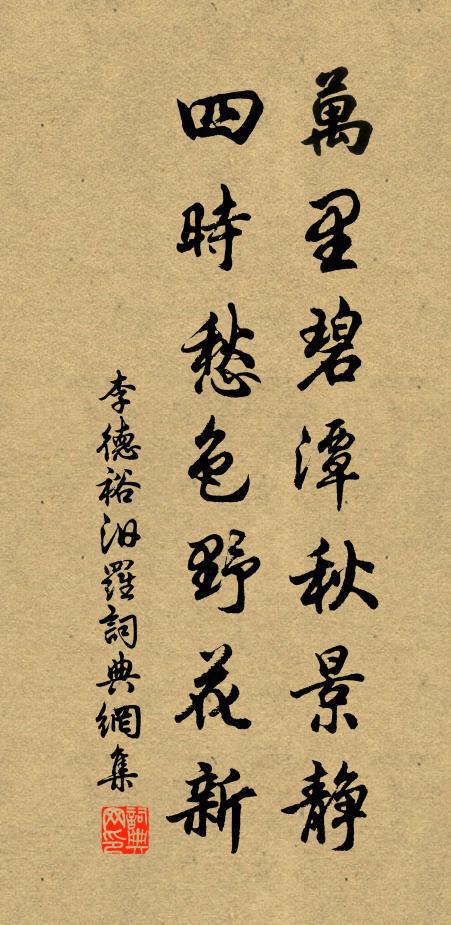 萬里碧潭秋景靜
四時愁色野花新
李德裕汨羅詞典網集
詞典網印